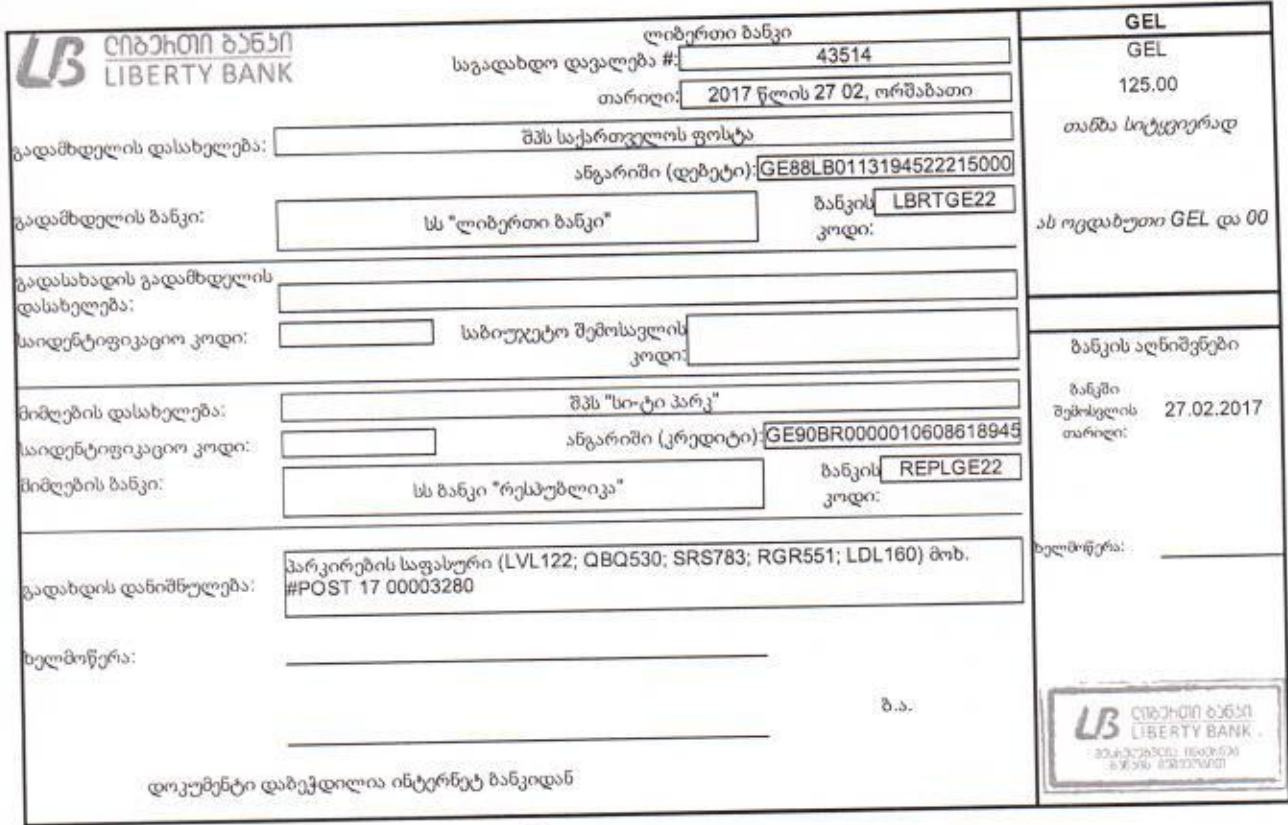 ლიბერთი ბანკი
LIBERTY BANK
ლიბერთი ბანკი
საგადახდო დავალება #: 43514
თარიღი: 2017 წლის 27 02, ორშაბათი
გადამხდელის დასახელება: შპს საქართველოს ფოსტა
ანგარიში (დებეტი): GE88LB0113194522215000
გადამხდელის ბანკი: სს "ლიბერთი ბანკი" ბანკის კოდი: LBRTGE22
გადასახადის გადამხდელის
დასახელება:
საიდენტიფიკაციო კოდი: საბიუჯეტო შემოსავლის
კოდი:
მიმღების დასახელება: შპს "სი-ტი პარკ"
საიდენტიფიკაციო კოდი: ანგარიში (კრედიტი): GE90BR0000010608618945
მიმღების ბანკი: სს ბანკი "რესპუბლიკა" ბანკის კოდი: REPLGE22
გადახდის დანიშნულება: პარკირების საფასური (LVL122; QBQ530; SRS783; RGR551; LDL160) მოხ.
#POST 17 00003280
ხელმოწერა:
ბ.ა.
დოკუმენტი დაბეჭდილია ინტერნეტ ბანკიდან
GEL
GEL
125.00
თანხა სიტყვიერად
ას ოცდახუთი GEL და 00
ბანკის აღნიშვნები
ბანკში
შემოსვლის 27.02.2017
თარიღი:
ხელმოწერა:
ლიბერთი ბანკი
LIBERTY BANK